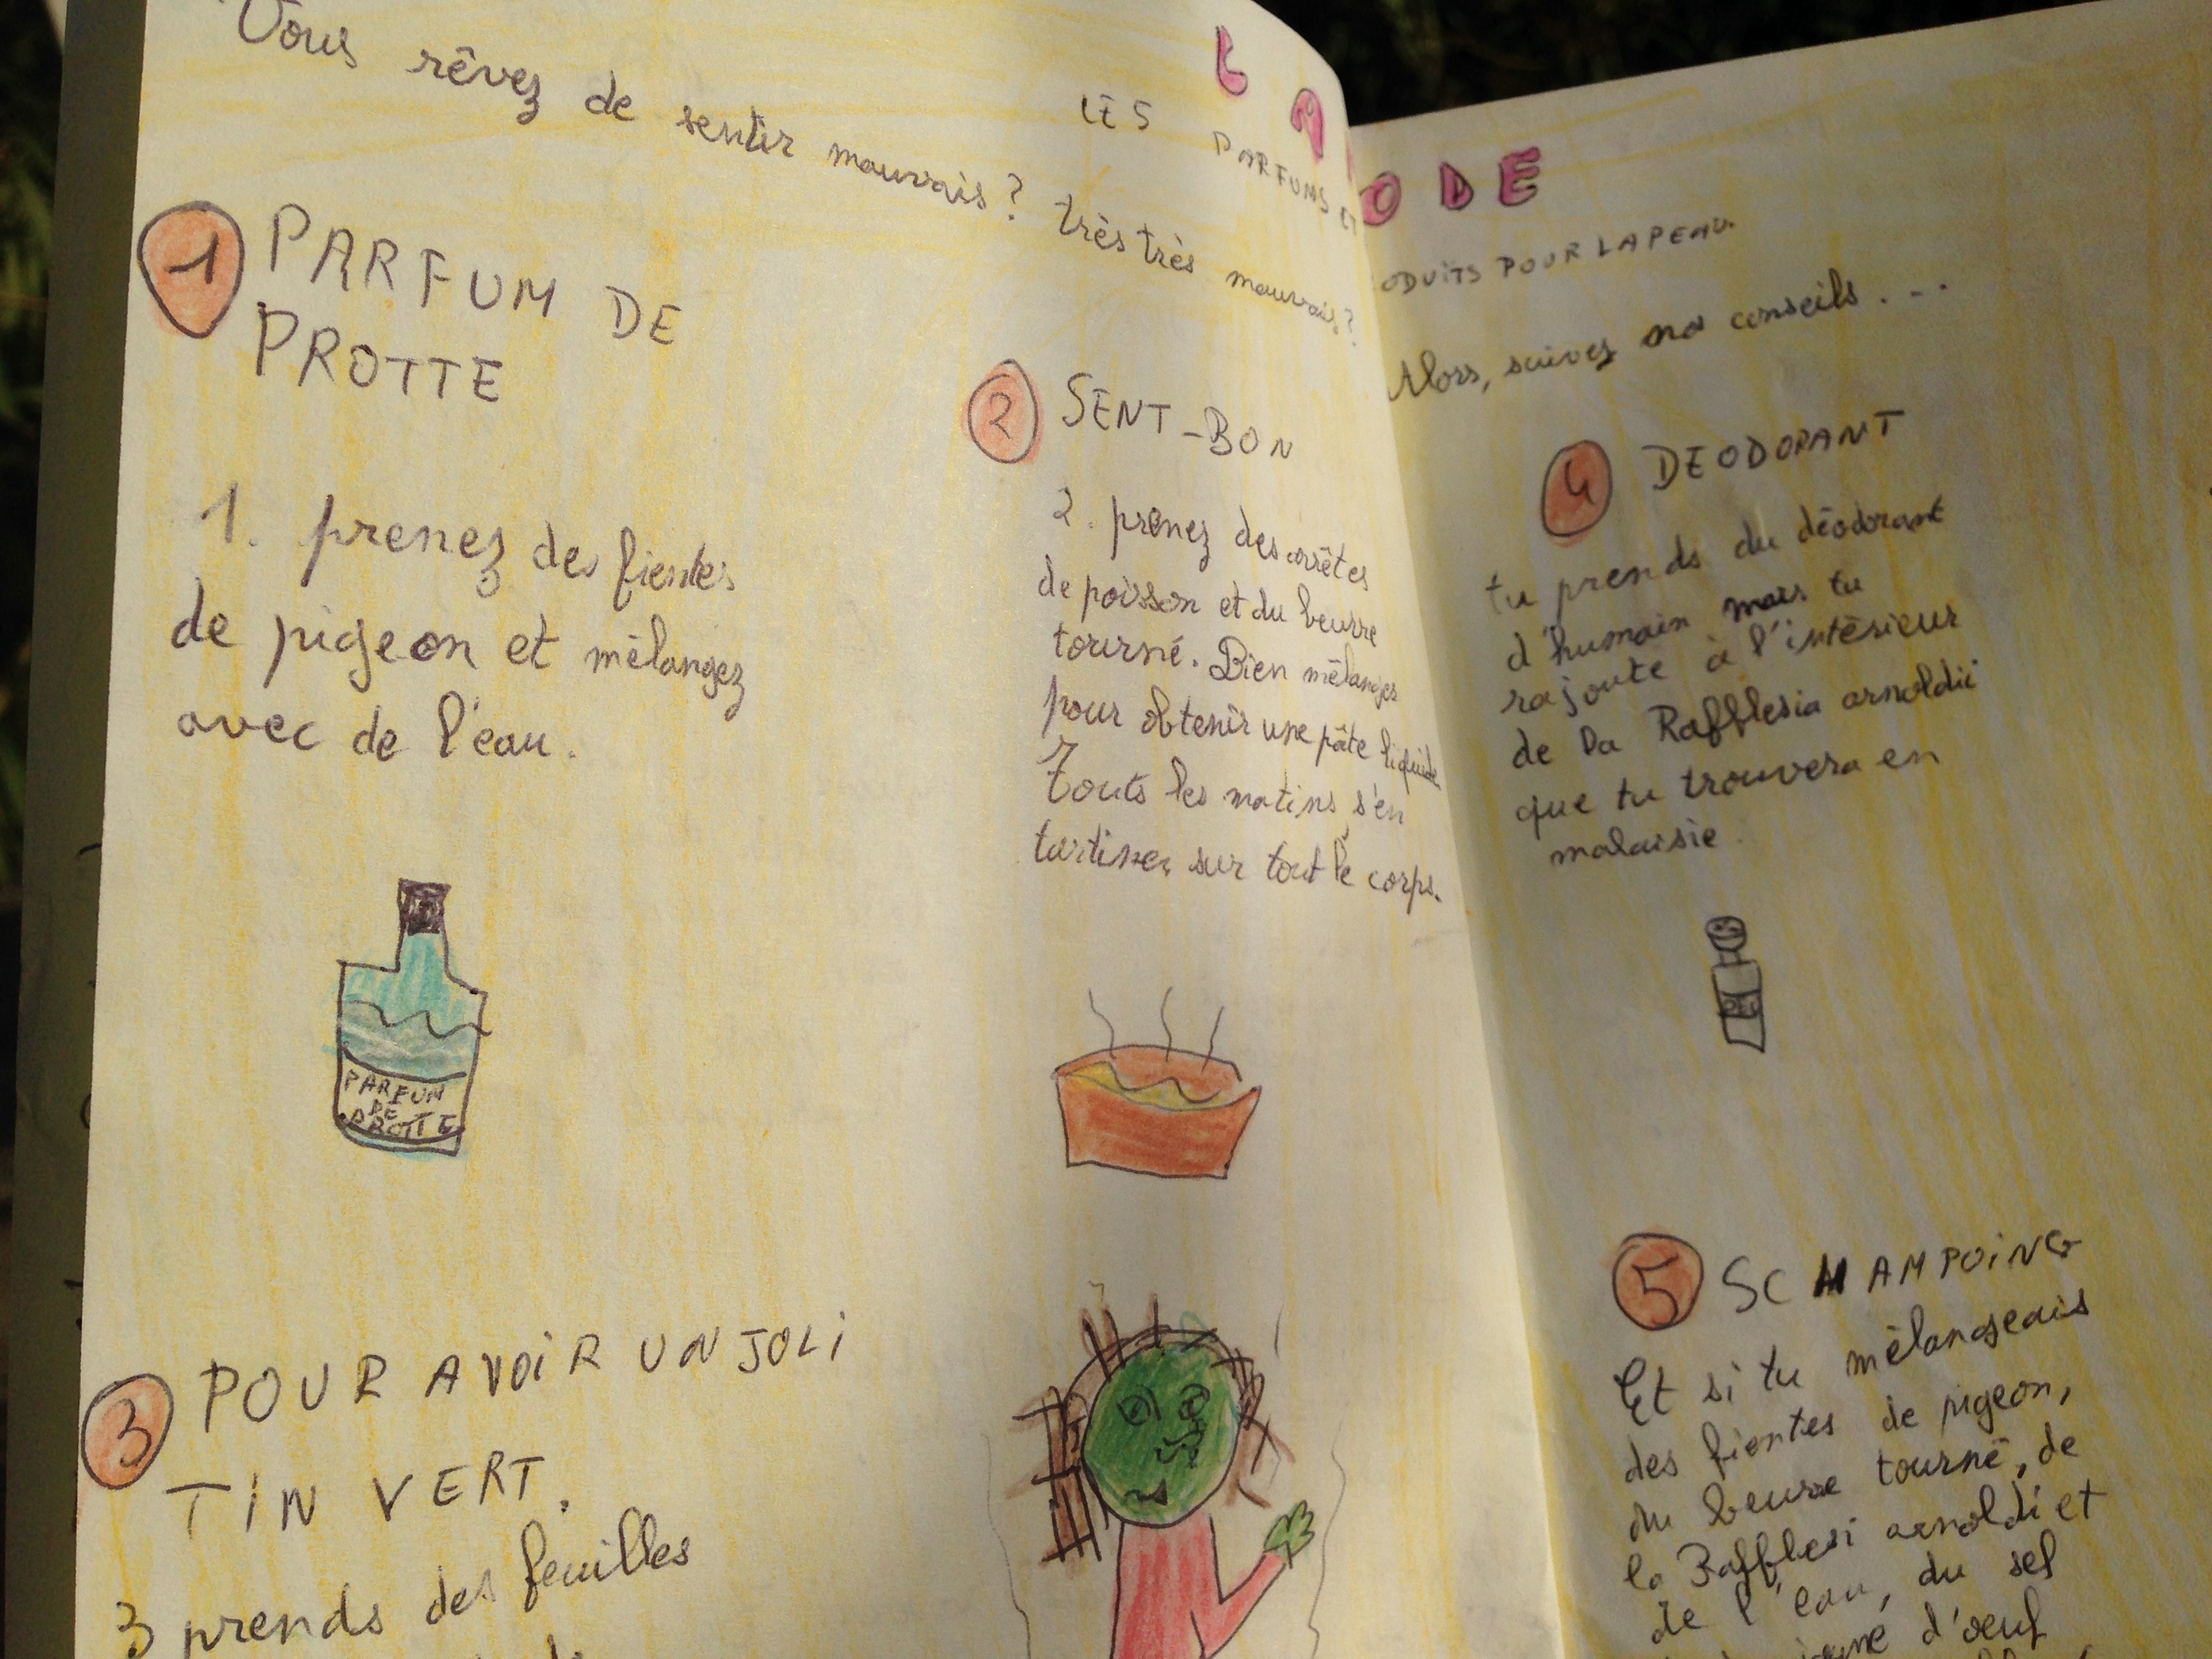 LA MODE
LES PARFUMS ET PRODUITS POUR LA PEAU
Vous rêvez de sentir mauvais? très très mauvais? Alors, suivez nos conseils . . .
1 PARFUM DE
PROTTE
1. prenez des fientes
de pigeon et mélangez
avec de l'eau.
PARFUM
DE
PROTTE
2 SENT-BON
2. prenez des arrêtes
de poisson et du beurre
tourné. Bien mélanger
pour obtenir une pâte liquide
Touts les matins s'en
tartiner sur tout le corps.
3 POUR AVOIR UN JOLI
TIN VERT.
3 prends des feuilles
4 DEODORANT
tu prends du déodorant
d'humain mais tu
rajoute à l'intérieur
de la Rafflesia arnoldii
que tu trouvera en
malaisie.
5 SCHAMPOING
Et si tu mélangeais
des fientes de pigeon,
du beurre tourné, de
la Rafflesi arnoldi et
de l'eau, du sel
jaune d'oeuf